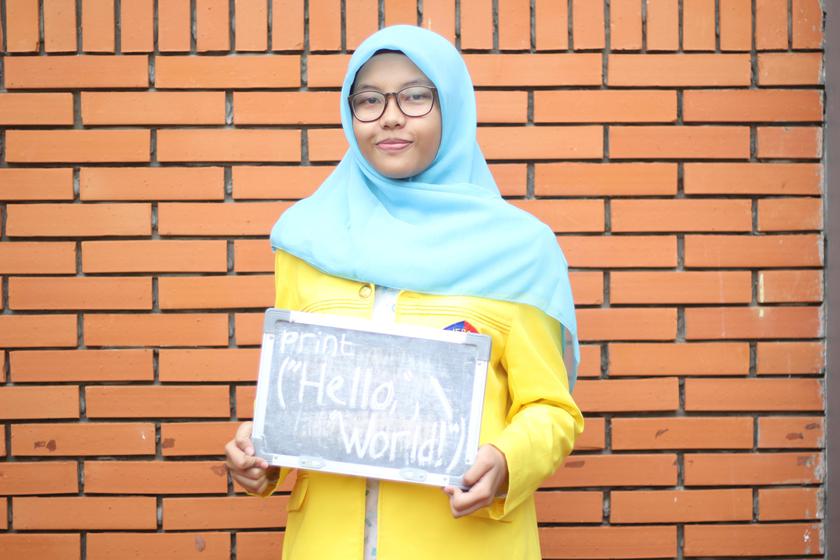 print
("Hello," \
"World!")